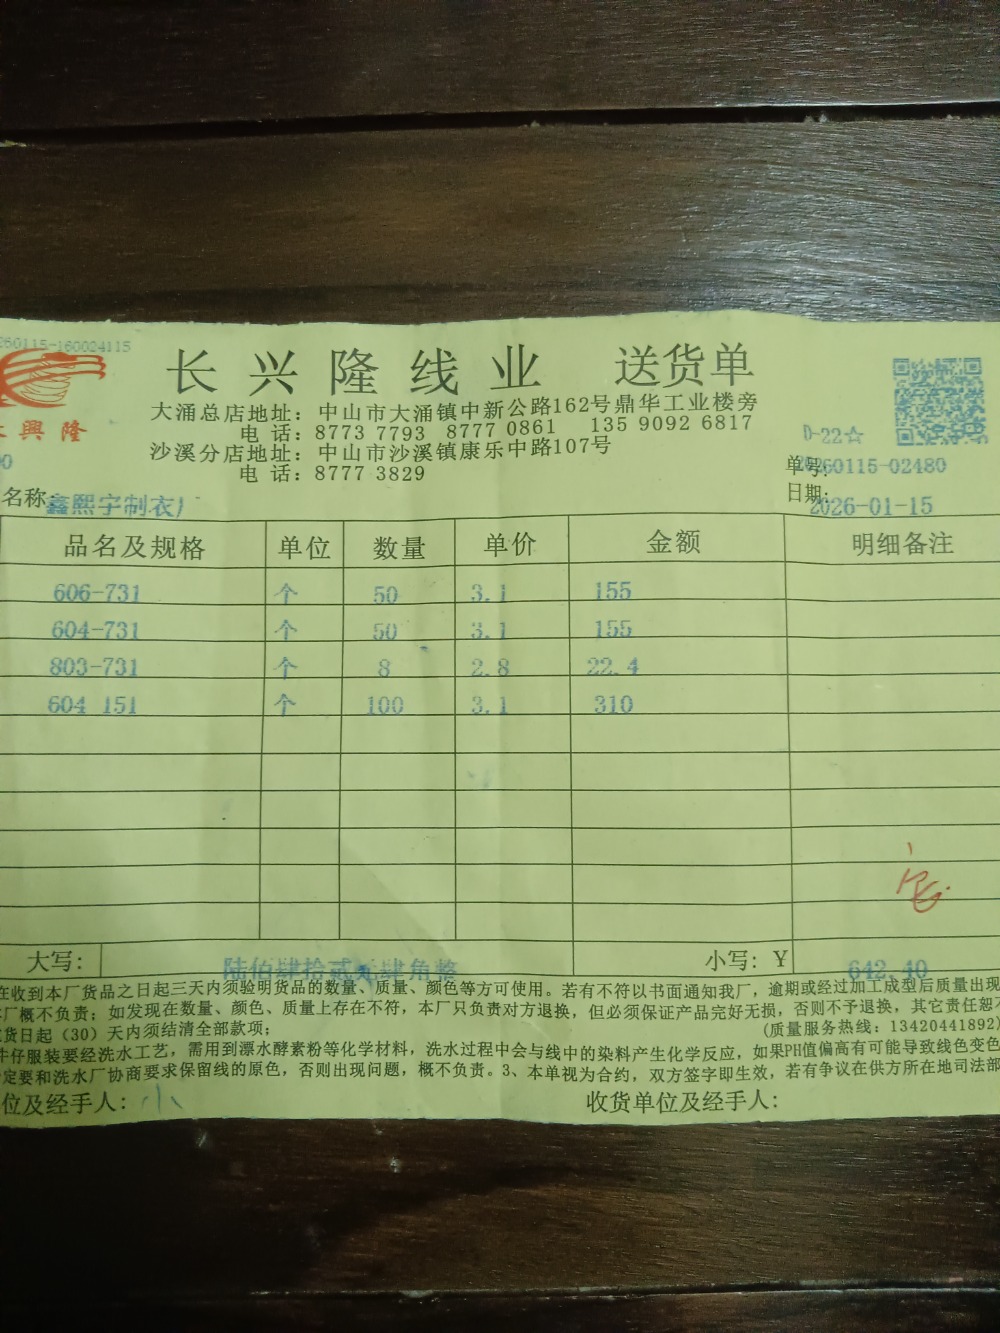 260115-160024115
长兴隆线业 送货单
興隆
大涌总店地址：中山市大涌镇中新公路162号鼎华工业楼旁
电 话：8773 7793 8777 0861 135 9092 6817
沙溪分店地址：中山市沙溪镇康乐中路107号
电 话：8777 3829
D-22☆
单号：260115-02480
名称：鑫熙宇制衣厂
日期：2026-01-15
品名及规格 单位 数量 单价 金额 明细备注
606-731 个 50 3.1 155
604-731 个 50 3.1 155
803-731 个 8 2.8 22.4
604 151 个 100 3.1 310
大写： 陆佰肆拾贰元肆角整 小写：￥ 642.40
在收到本厂货品之日起三天内须验明货品的数量、质量、颜色等方可使用。若有不符以书面通知我厂，逾期或经过加工成型后质量出现
厂概不负责；如发现在数量、颜色、质量上存在不符，本厂只负责对方退换，但必须保证产品完好无损，否则不予退换，其它责任恕不
货日起（30）天内须结清全部款项； (质量服务热线：13420441892)
牛仔服装要经洗水工艺，需用到漂水酵素粉等化学材料，洗水过程中会与线中的染料产生化学反应，如果PH值偏高有可能导致线色变色
定要和洗水厂协商要求保留线的原色，否则出现问题，概不负责。3、本单视为合约，双方签字即生效，若有争议在供方所在地司法部
位及经手人：小 收货单位及经手人：